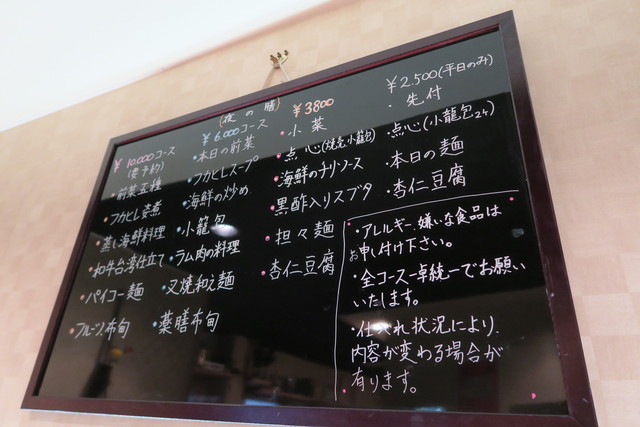 ¥10.000コース
(要予約)
・前菜五種
・フカヒレ姿煮
・蒸し海鮮料理
・和牛台湾仕立て
・パイコー麺
・フルーツ布甸
(夜の膳)
¥6.000コース
・本日の前菜
・フカヒレスープ
・海鮮の炒め
・小籠包
・ラム肉の料理
・叉焼和え麺
・薬膳布甸
¥3800
・小菜
・点心(焼売小籠包)
・海鮮のチリソース
・黒酢入りスブタ
・担々麺
・杏仁豆腐
¥2.500(平日のみ)
・先付
・点心(小籠包2ケ)
・本日の麺
・杏仁豆腐
・アレルギー、嫌いな食品は
お申し付け下さい。
・全コース一卓統一でお願い
いたします。
・仕入れ状況により、
内容が変わる場合が
有ります。